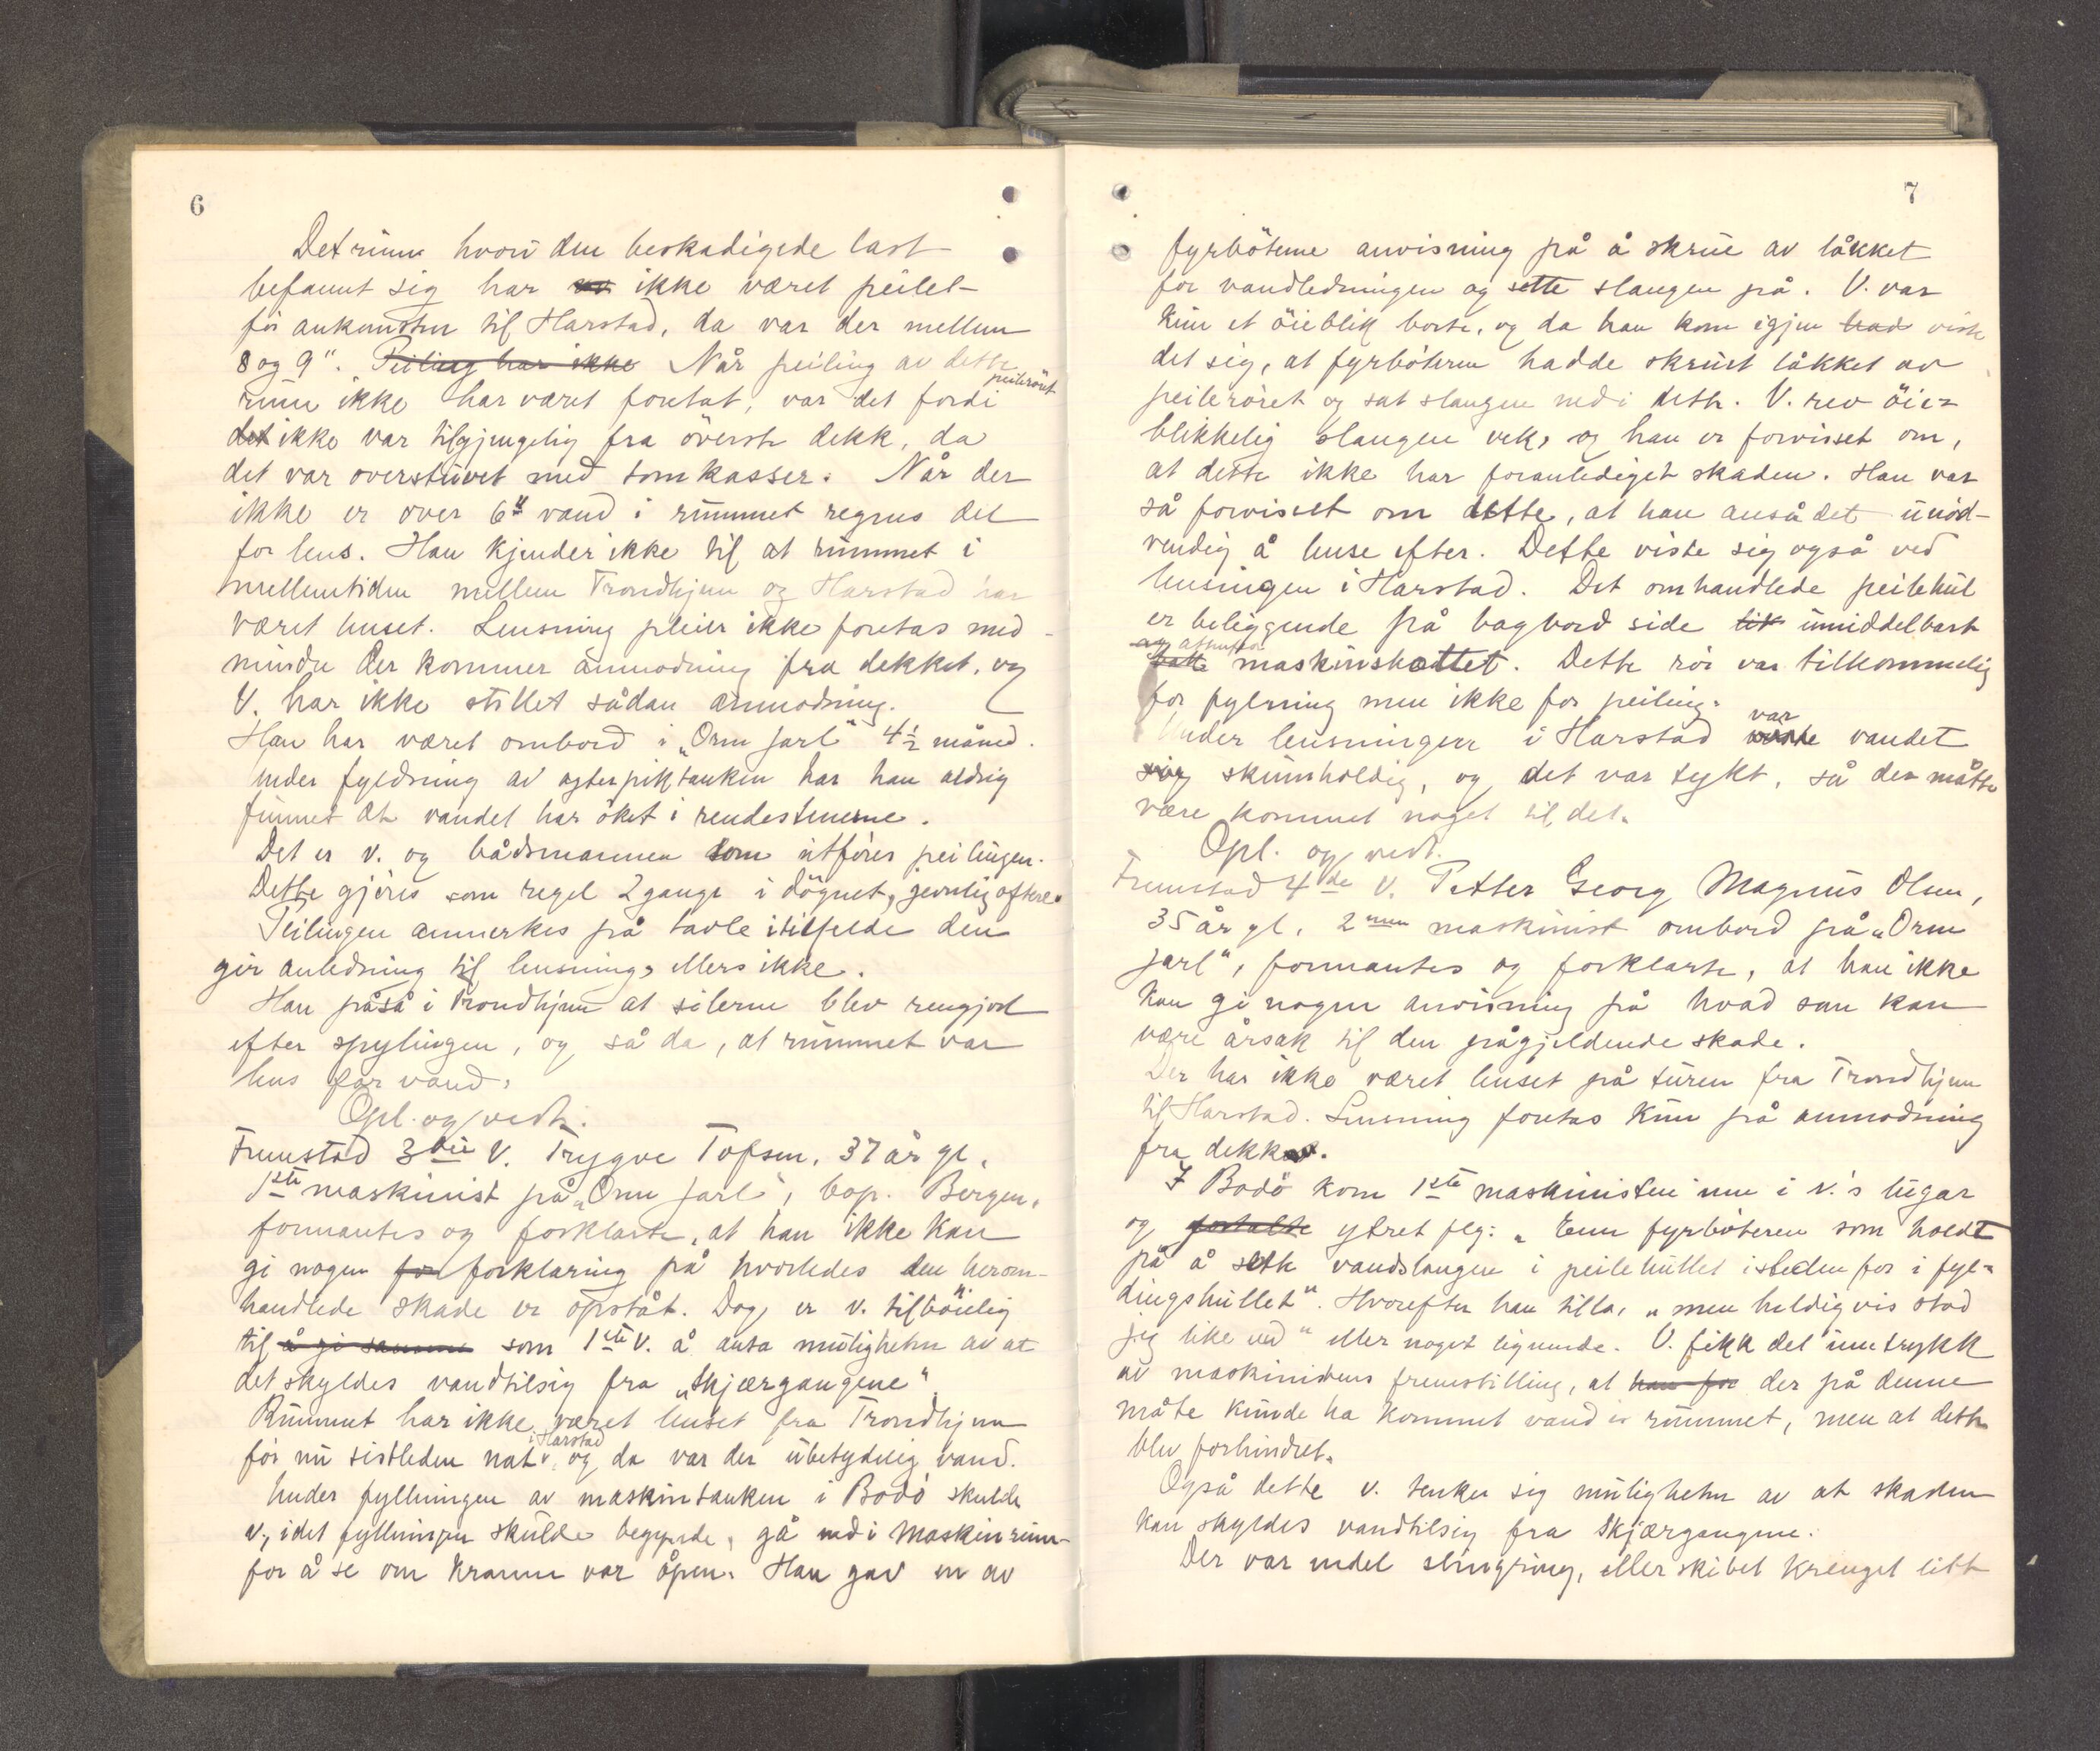 6
Det rum hvori den beskadigede last
befannt sig har ikke været peilet
før ankomsten til Harstad, da var der mellem
8 og 9". Peiling har ikke Når peiling av dette
rum ikke har været foretat, var det fordi peilerøret
det ikke var tilgjengelig fra øverste dekk, da
det var overstuvet med tomkasser. Når der
ikke er over 6" vand i rummet regnes det
for lens. Han kjender ikke til at rummet i
mellemtiden mellem Trondhjem og Harstad har
været lenset. Lensning pleier ikke foretas med-
mindre der kommer anmodning fra dekket, og
V. har ikke stillet sådan anmodning.
Han har været ombord i „Orm Jarl" 4½ måned.
Under fyldning av agterpiktanken har han aldrig
funnet at vandet har øket i rendestenene.
Det er v. og båtsmannen som utfører peilingen.
Dette gjøres som regel 2 gange i døgnet, jevnlig oftere.
Peilingen anmerkes på tavle i tilfelde den
gir anledning til lensning, ellers ikke.
Han påså i Trondhjem at silerne blev rengjort
efter spylingen, og så da, at rummet var
lens for vand.
Opl. og vedt.
Fremstod 3die V. Trygve Tofsen, 37 år gl.
1ste maskinist på „Orm Jarl", bop. Bergen,
formantes og forklarte, at han ikke kan
gi nogen for forklaring på hvorledes den herom-
handlede skade er opståt. Dog er v. tilbøielig
til å gi samme som 1ste V. å anta muligheten av at
det skyldes vandtilsig fra „Skjærgangene"
Rummet har ikke været lenset fra Trondhjem
i Harstad
før nu sistleden nat, og da var der ubetydelig vand.
Under fyllningen av maskintanken i Bodö skulde
v., idet fyllningen skulde begynde, gå ned i maskinrum-
for å se om kranen var åpen. Han gav en av
7
fyrbøterne anvisning på å skrue av låkket
for vandledningen og sette slangen på. V. var
kun et öieblik borte, og da han kom igjen had viste
det sig, at fyrbøteren hadde skruet låkket av
peilerøret og sat slangen ned i dette. V. rev öie-
blikkelig slangen vek, og han er forvisset om,
at dette ikke har foranlediget skaden. Han var
så forvisset om dette, at han anså det unød-
vendig å lense efter. Dette viste sig også ved
lensingen i Harstad. Det omhandlede peilehul
er beliggende på bagbord side umiddelbart
maskinskottet. Dette rör var tilkommelig
for fylning men ikke for peiling.
Under lensningen i Harstad var viste vandet
sig skumholdig, og det var tykt, så der måtte
være kommet noget til det.
Opl. og vedt.
Fremstod 4de V. Petter Georg Magnus Olsen,
35 år gl. 2nen maskinist ombord på „Orm
Jarl", formantes og forklarte, at han ikke
kan gi nogen anvisning på hvad som kan
være årsak til den pågjeldende skade.
Der har ikke været lenset på turen fra Trondhjem
til Harstad. Lensning foretas kun på anmodning
fra dekket.
I Bodö kom 1ste maskinisten inn i v.'s lugar
og fortalte ytret flg: „ Enn fyrbøteren som holdt
på å sette vandslangen i peilehullet istedenfor i fyl-
dingshullet". Hvorefter han tilla, „men heldigvis stod
jeg like ved" eller noget lignende. V. fikk det inntrykk
av maskinistens fremstilling, at han for der på denne
måte kunde ha kommet vand i rummet, men at dette
blev forhindret.
Også dette v. tenker sig muligheten av at skaden
kan skyldes vandtilsig fra skjærgangene.
Der var endel slingring, eller skibet krenget litt